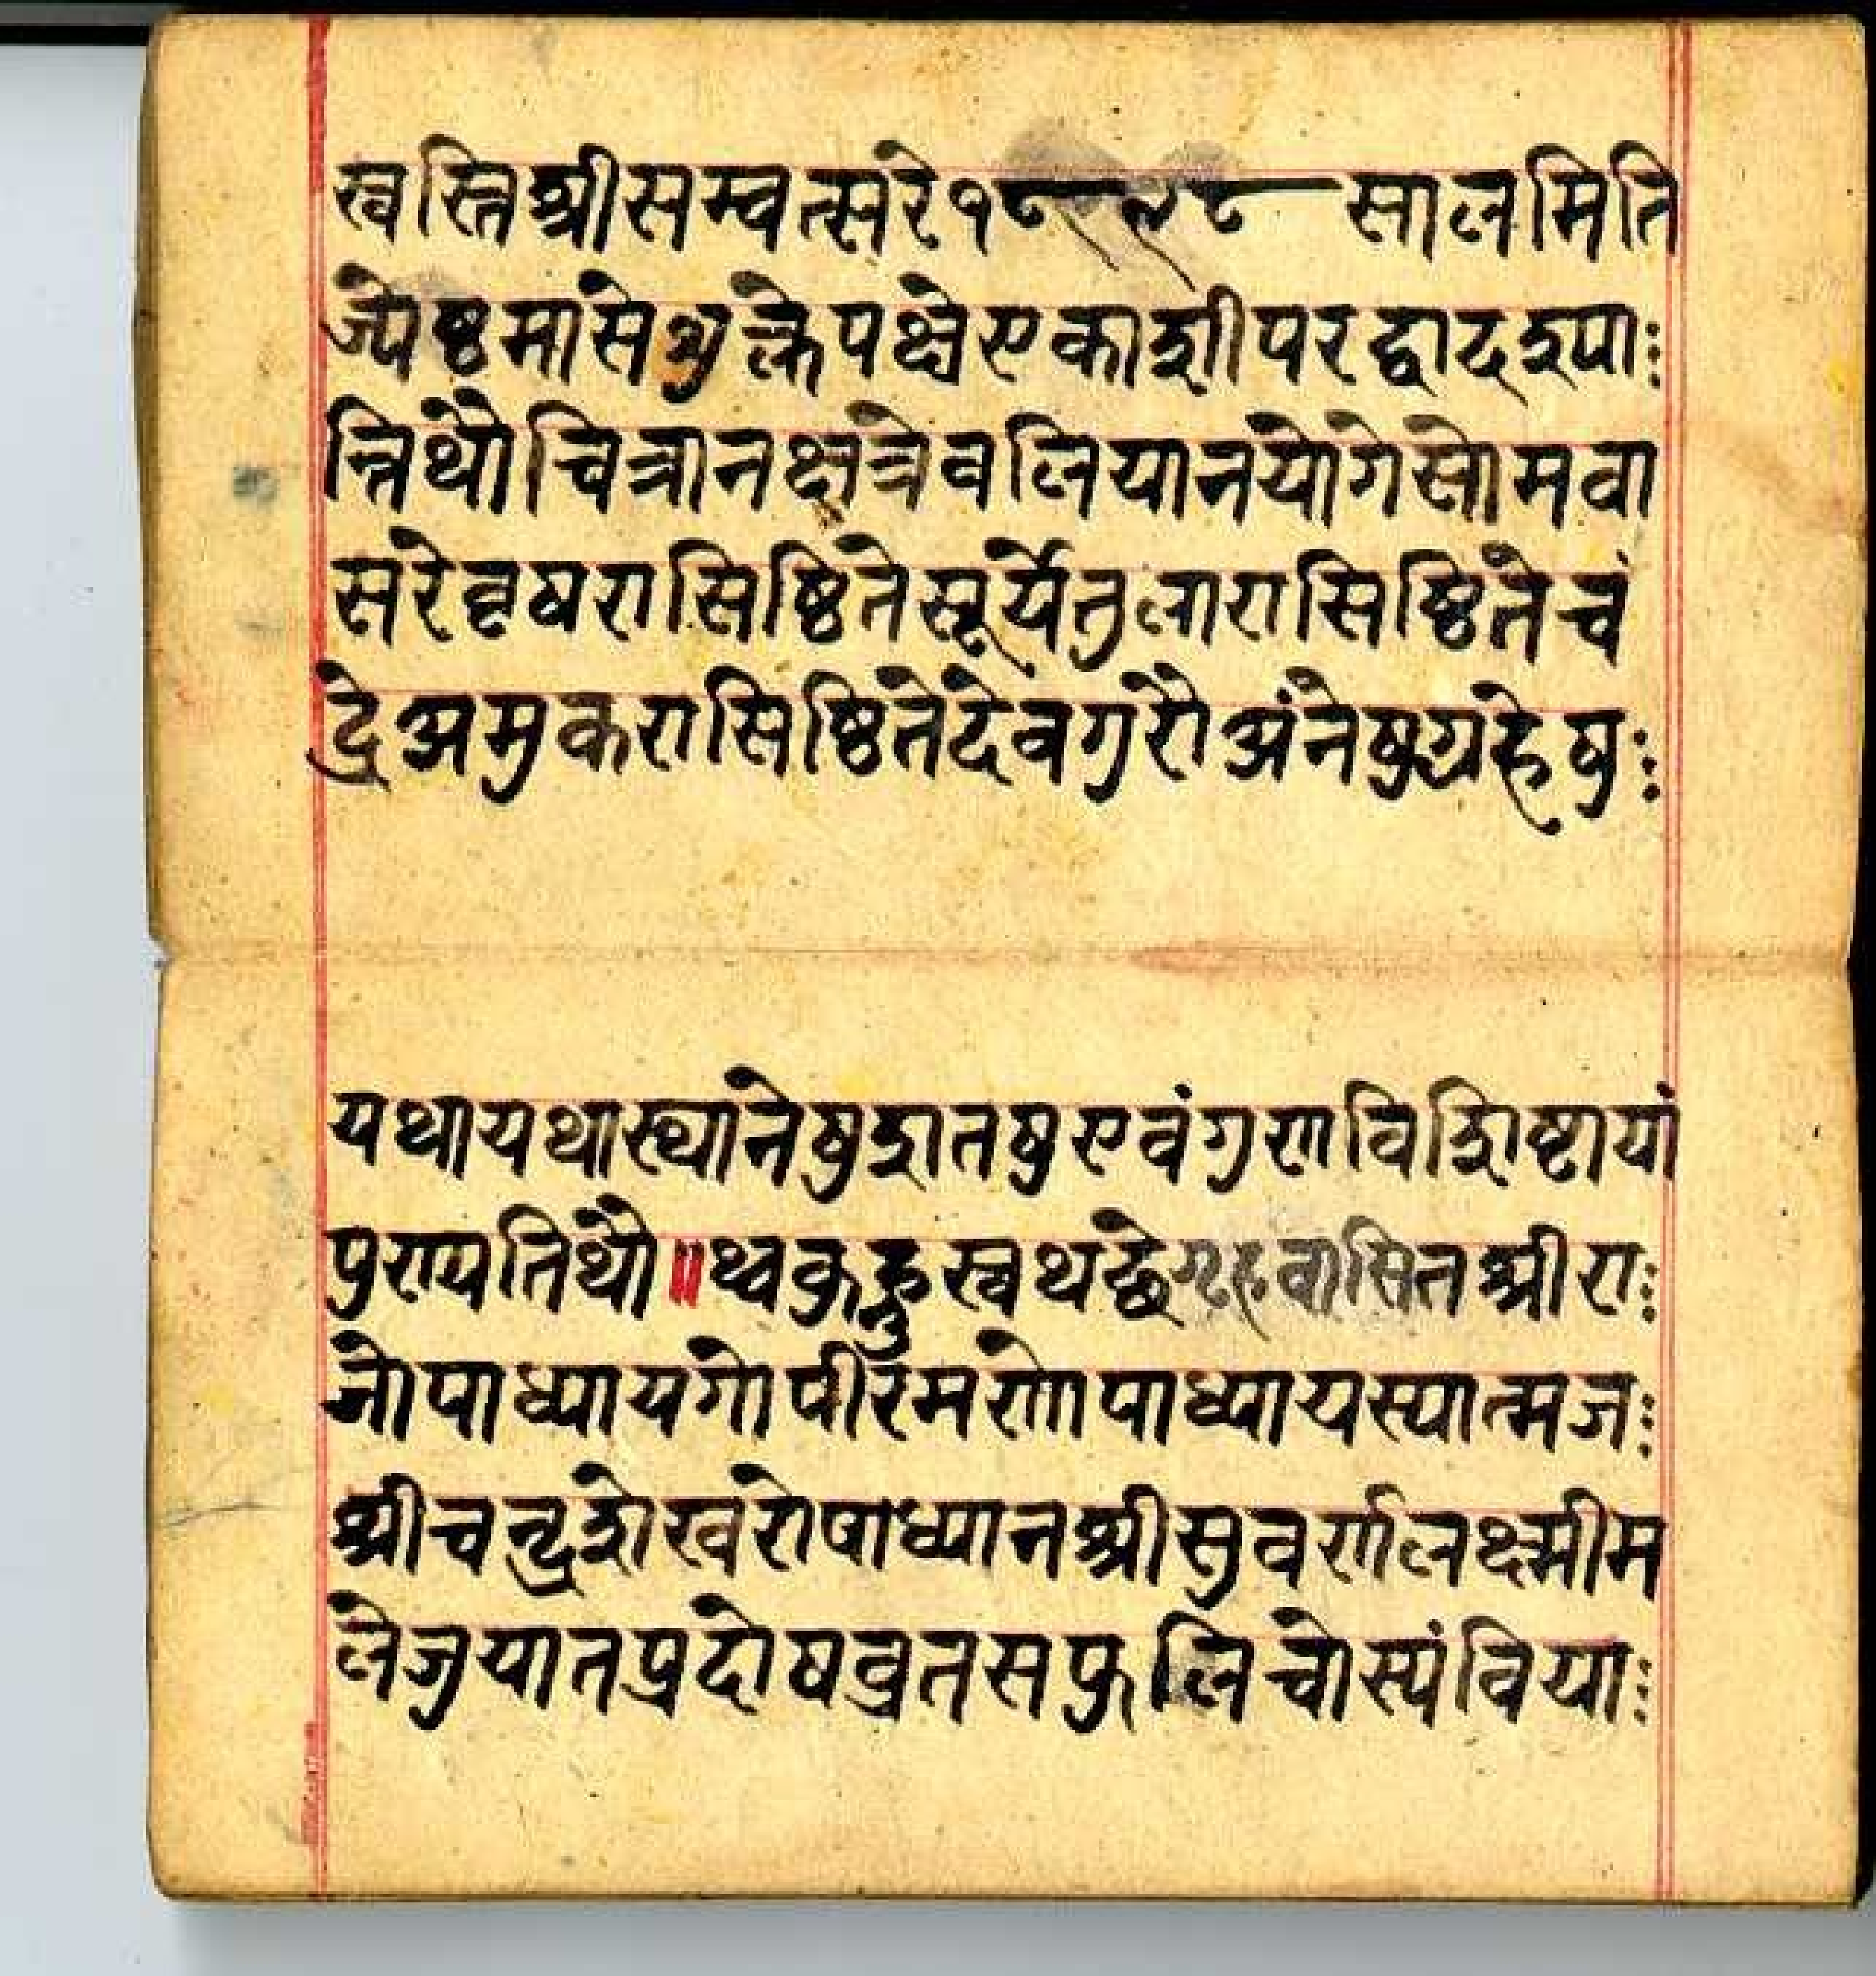 स्वस्तिश्रीसम्वत्सरे१८ ५८ सालमिति
ज्येष्ठमासेशुक्लेपक्षेएकाशीपरद्वादश्याः
त्तिथौचित्रानक्षत्रेवलियानयोगेसोमवा
सरेवृषरासिष्ठितेसूर्येतुलारासिष्ठितेचं
द्रेअमुकरासिष्ठितेदेवगुरौअंनेषुग्रहेषुः
यथायथास्थानेषुशतषुएवंगुणविशिष्टायां
पुण्यतिथौ॥थ्वकुह्नुस्वथछेगृहवासितश्रीराः
जोपाध्यायगोपीरमणोपाध्यायस्यात्मजः
श्रीचन्द्रशेखरोपाध्यानश्रीसुवर्णलक्ष्मीम
लेजुयातप्रदोषव्रतसफुलिचोस्यंवियाः